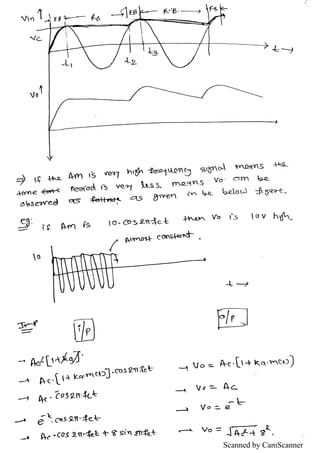 Vin↑ FB RB FB R·B· FB
Vc
t1 t2 t3 t→
Vo↑
⇒ If the Am is very high frequency signal means the
time period is very less. means Vo can be
observed as given in be below figure.
eg: if Am is 10.cos2πfct then Vo is 10V high
Almost constant.
10
t→
Imp i/p o/p
→ Ac[1+ka].
→ Ac.[1+ka.m(t)].cos2πfct → Vo = Ac.[1+ka.m(t)]
→ Ac.cos2π.fct → Vo = Ac
→ e^-t.cos2π.fct → Vo = e^-t
→ Ac.cos2π.fct + 8 sin2πfct → Vo = √Ac²+8².
Scanned by CamScanner